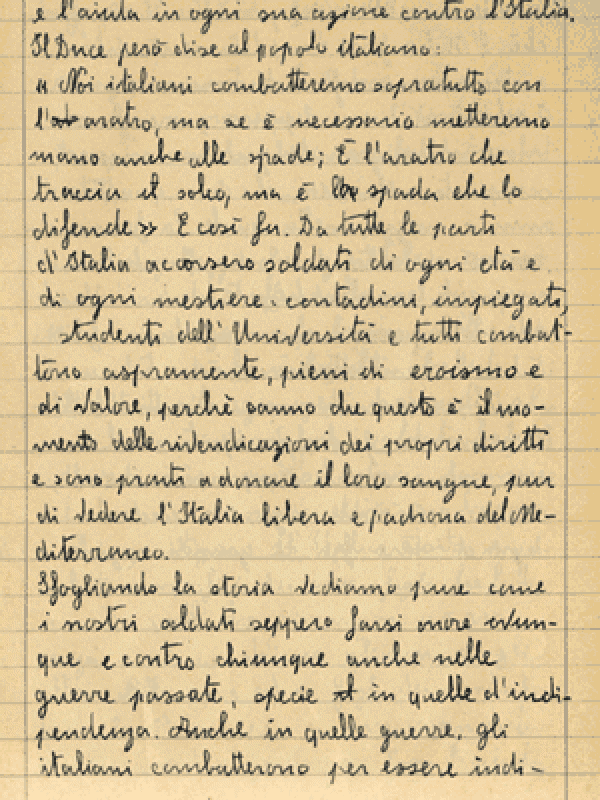 e l'aiuta in ogni sua azione contro l'Italia.
Il Duce però dise al popolo italiano:
« Noi italiani combatteremo sopratutto con
l'aratro, ma se è necessario metteremo
mano anche alle spade; È l'aratro che
traccia il solco, ma è la spada che lo
difende » E così fu. Da tutte le parti
d'Italia accorsero soldati di ogni età e
di ogni mestiere. contadini, impiegati,
studenti dell'Università e tutti combat-
tono aspramente, pieni di eroismo e
di valore, perchè sanno che questo è il mo-
mento delle rivendicazioni dei propri diritti
e sono pronti a donare il loro sangue, pur
di vedere l'Italia libera e padrona del Me-
diterraneo.
Sfogliando la storia vediamo pure come
i nostri soldati seppero farsi onore ovun-
que e contro chiunque anche nelle
guerre passate, specie in quelle d'indi-
pendenza. Anche in quelle guerre, gli
italiani combatterono per essere indi-